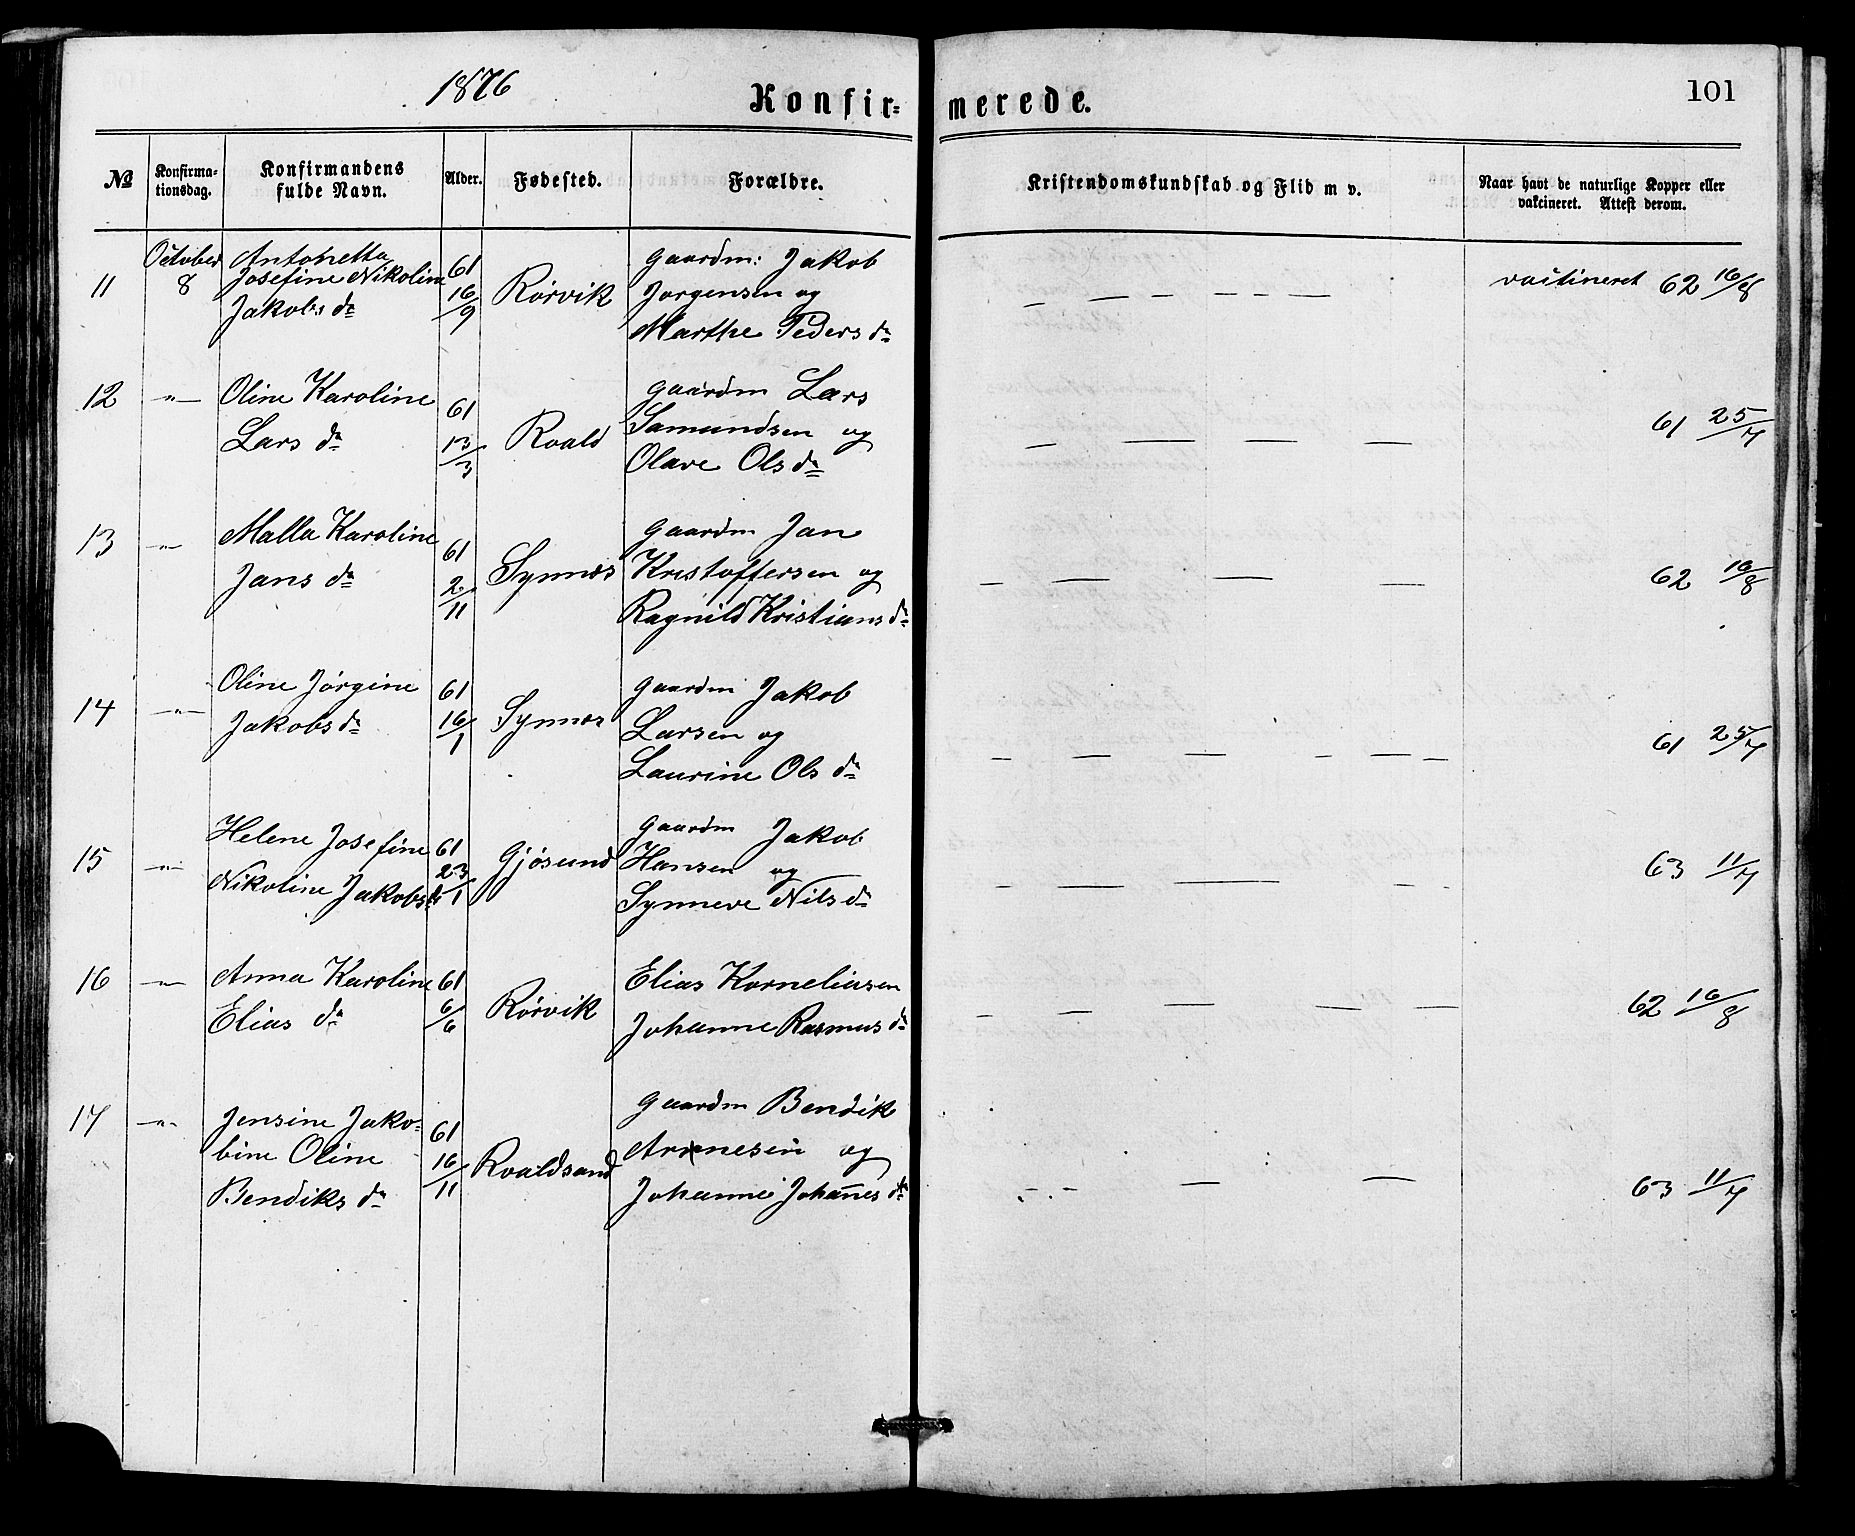 1876
Konfir=
merede.
101
No
Konfirma-
tionsdag.
Konfirmandens
fulde Navn.
Alder.
Fødested.
Forældre.
Kristendomskundskab og Flid m v.
Naar havt de naturlige Kopper eller
vakcineret. Attest derom.
11 October 8 Antonetta Josefine Nikoline Jakobs dr 61 16/9 Rörvik gaardm: Jakob Jorgensen og Marthe Peders dr — — — — — vactineret 62 16/8
12 —"— Oline Karoline Lars dr 61 13/3 Roald gaardm Lars Samundsen og Olave Ols dr — — — — 61 25/7
13 —"— Malla Karoline Jans dr 61 2/11 Synnæs gaardm Jan Kristoffersen og Ragnild Kristians dr — — — — 62 16/8
14 —"— Oline Jørgine Jakobs dr 61 16/1 Synnæs gaardm Jakob Larsen og Laurine Ols dr — — — — — — 61 25/7
15 —"— Helene Josefine Nikoline Jakobs dr 61 23/1 Gjøsund gaardm Jakob Hansen og Synneve Nils dr — — — — — 63 11/7
16 —"— Anna Karoline Elias dr 61 6/6 Rørvik Elias Korneliasen Johanne Rasmus dr — — — — — 62 16/8
17 —"— Jensine Jako- bine Oline Bendiks dr 61 16/11 Roaldsand gaardm Bendik og Johanne Johannes dr — — — — 63 11/7